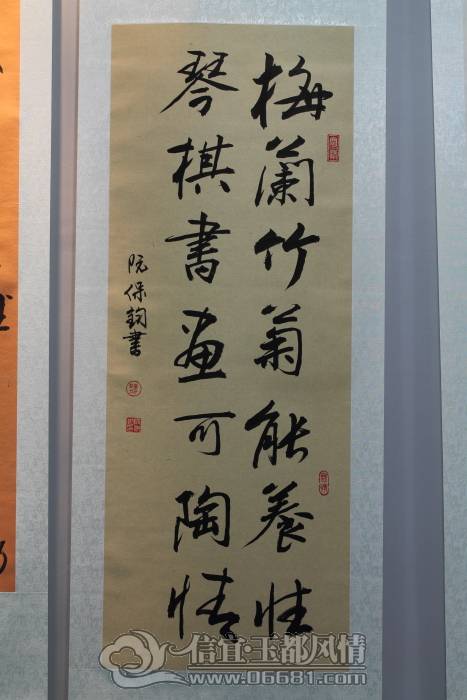 梅蘭竹菊能養性
琴棋書畫可陶情
阮保鈞書
信宜·玉都风情
www.06681.com